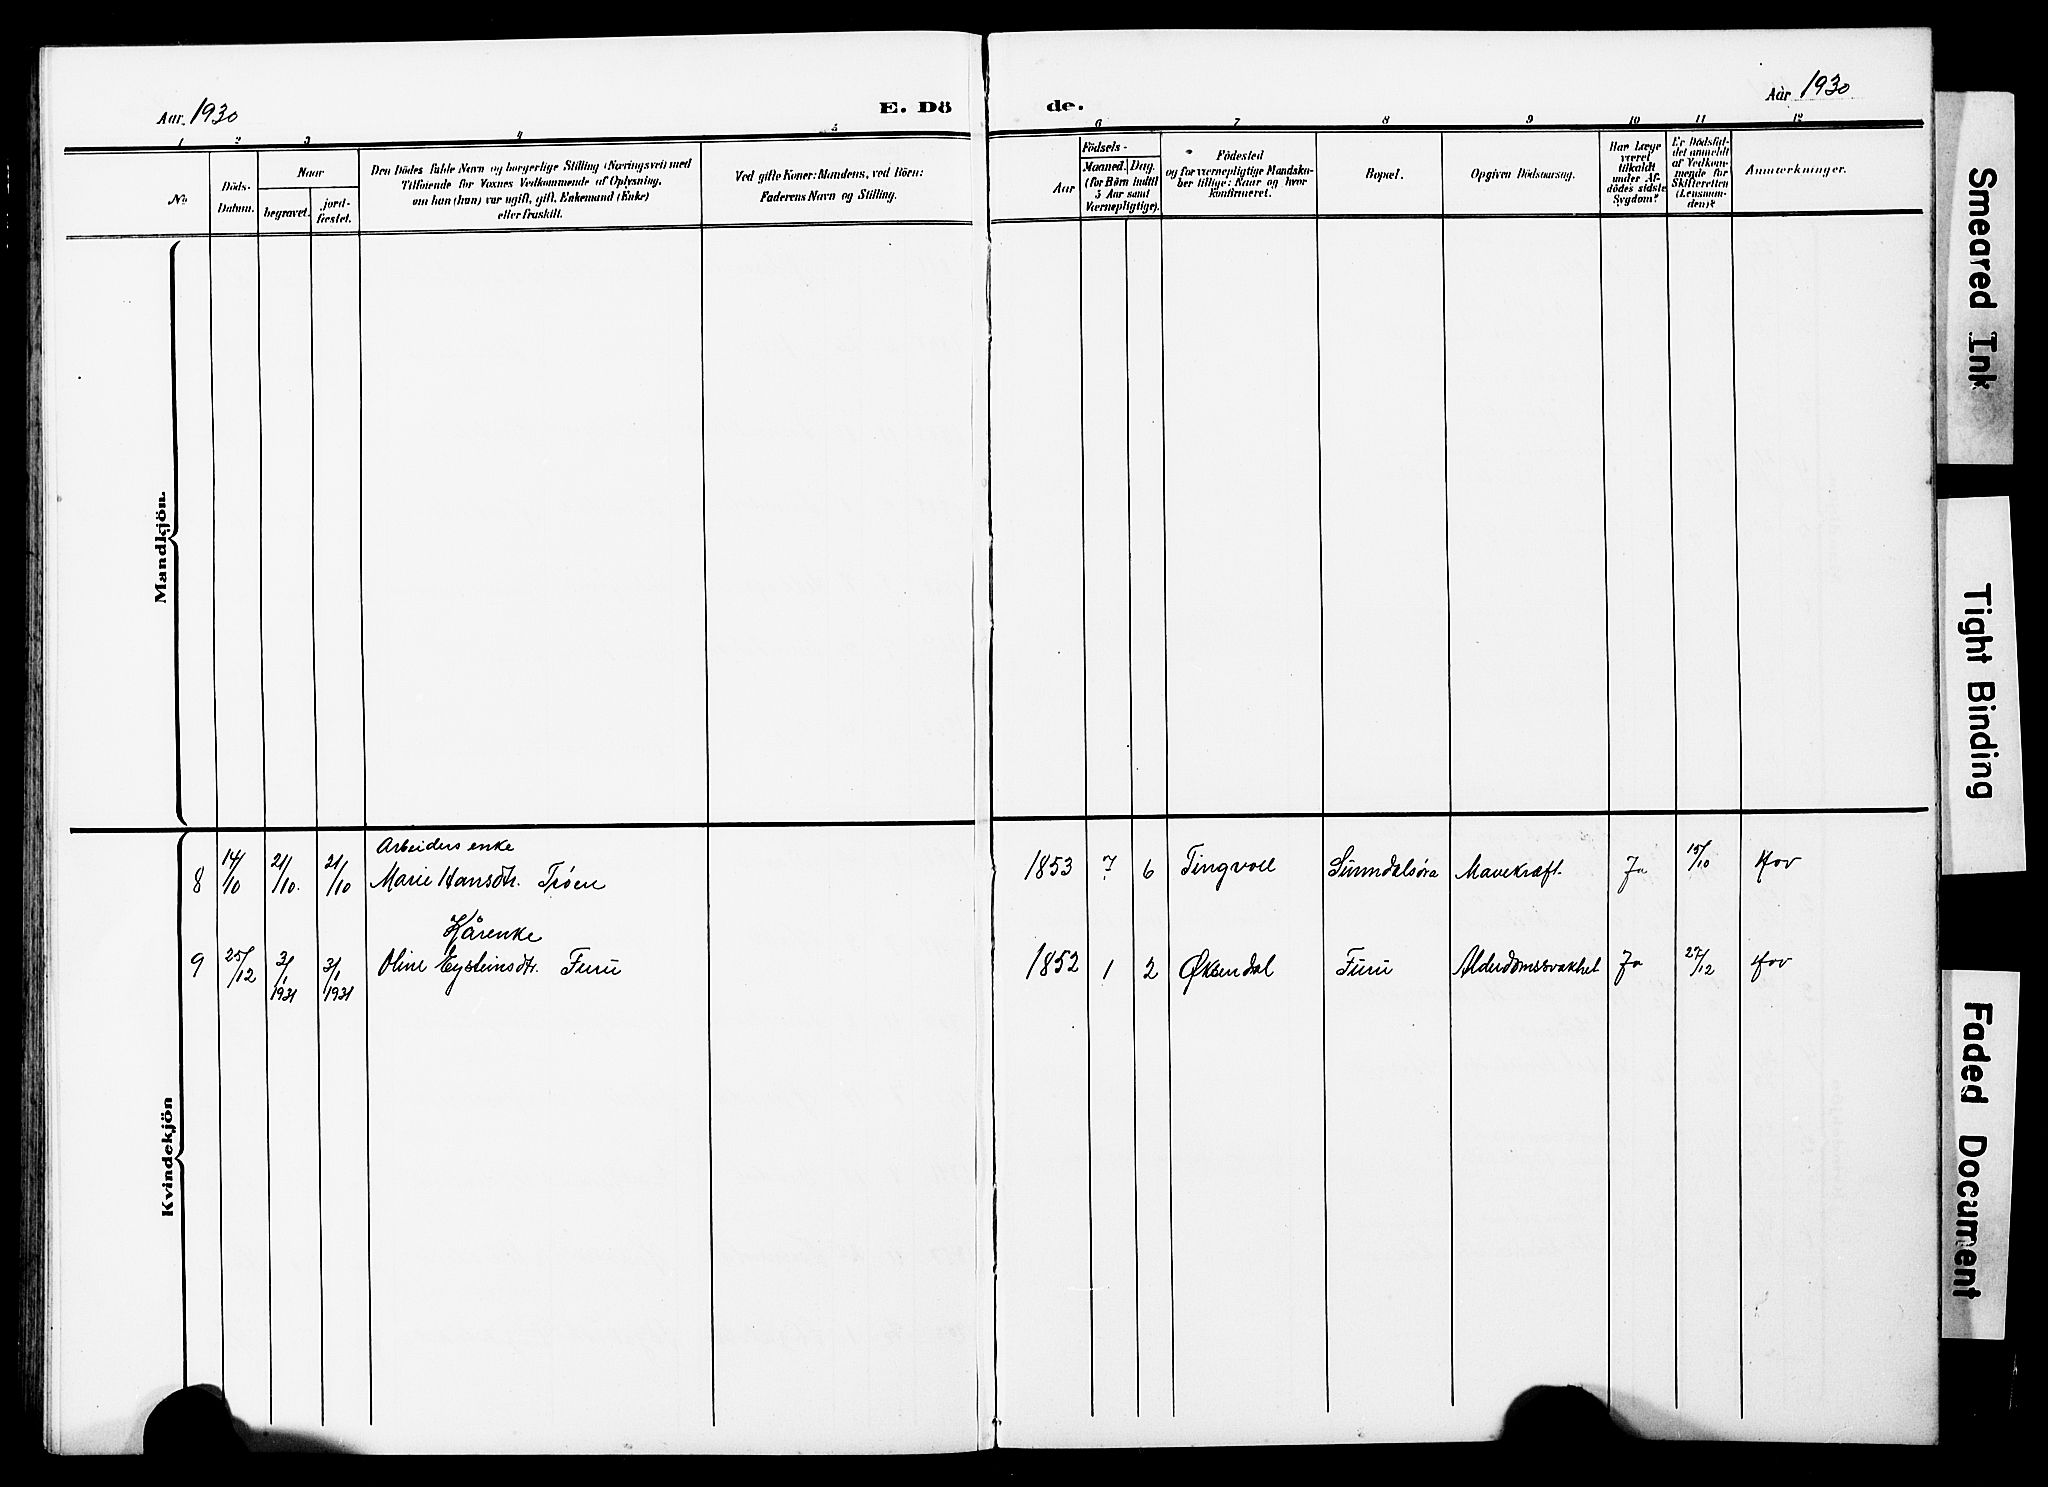 Aar 1930
E. Dö
de.
Aar 1930
1 2 3 4 5
6 7 8 9 10 11 12
No
Döds-
Datum.
Naar
begravet.
jord-
fæstet.
Den Dödes fulde Navn og borgerlige Stilling (Næringsvei) med
Tilföiende for Voxnes Vedkommende af Oplysning,
om han (hun) var ugift, gift, Enkemand (Enke)
eller fraskilt.
Ved gifte Koner: Mandens, ved Börn:
Faderens Navn og Stilling.
Födsels-
Aar
Maaned. Dag.
(for Börn indtil
5 Aar samt
Værnepligtige).
Födested
og for værnepligtige Mandskа-
ber tillige: Naar og hvor
konfirmeret.
Bopæl.
Opgiven Dödsaarsag.
Har Læge
været
tilkaldt
under Af-
dödes sidste
Sygdom?
Er Dödsfal-
det anmeldt
af Vedkom-
mende for
Skifteretten
(Lensman-
den)?
Anmærkninger.
Mandkjön.
Kvindekjön
Arbeiders enke
8 14/10 21/10. 21/10 Marie Hansdtr. Trøen 1853 7 6 Tingvoll Sunndalsøra Mavekræft. Ja 15/10 Hov
Kårenke
9 25/12 3/1 1931 3/1 1931 Oline Eysteinsdtr. Furu 1852 1 2 Øksendal Furu Alderdomssvakhet Ja 27/12 Hov
Smeared Ink
Tight Binding
Faded Document